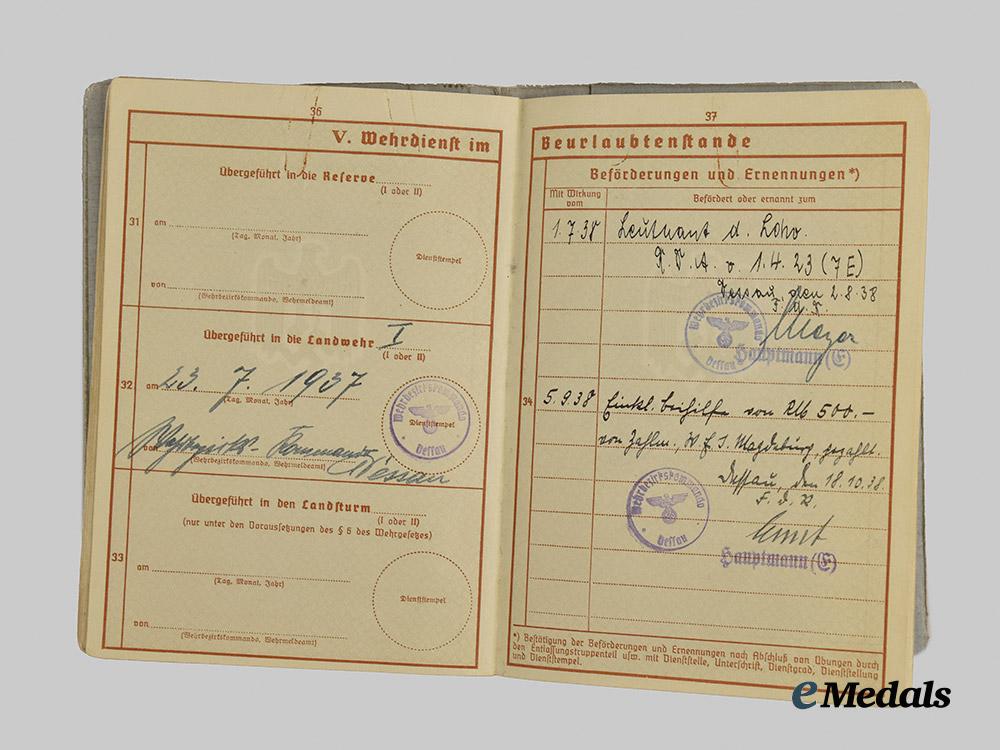 36
V. Wehrdienst im
Übergeführt in die Reserve
(I oder II)
31
am
(Tag, Monat, Jahr)
Dienststempel
von
(Wehrbezirkskommando, Wehrmeldeamt)
Übergeführt in die Landwehr I
(I oder II)
32
am 23. 7. 1937
(Tag, Monat, Jahr)
Wehrbezirkskommando
Dienststempel
Dessau
von Wehrbezirks-Kommando Dessau
(Wehrbezirkskommando, Wehrmeldeamt)
Übergeführt in den Landsturm
(I oder II)
(nur unter den Voraussetzungen des § 6 des Wehrgesetzes)
33
am
(Tag, Monat, Jahr)
Dienststempel
von
(Wehrbezirkskommando, Wehrmeldeamt)
37
Beurlaubtenstande
Beförderungen und Ernennungen*)
Mit Wirkung vom
Befördert oder ernannt zum
1.7.38 Leutnant d. Ldw.
P.A. v. 1.4.23 (7E)
Dessau, den 2.8.38
Wehrbezirkskommando
Dessau
Hauptmann (E)
34
5.9.38 Einkl. beihilfe von RM 500.-
von Zahlm. W.E.I. Magdeburg, gezahlt.
Dessau, den 18.10.38.
F.d.R.
Wehrbezirkskommando
Dessau
Hauptmann (E)
*) Bestätigung der Beförderungen und Ernennungen nach Abschluß von Übungen durch
den Entlassungstruppenteil usw. mit Dienststelle, Unterschrift, Dienstgrad, Dienststellung
und Dienststempel.
eMedals